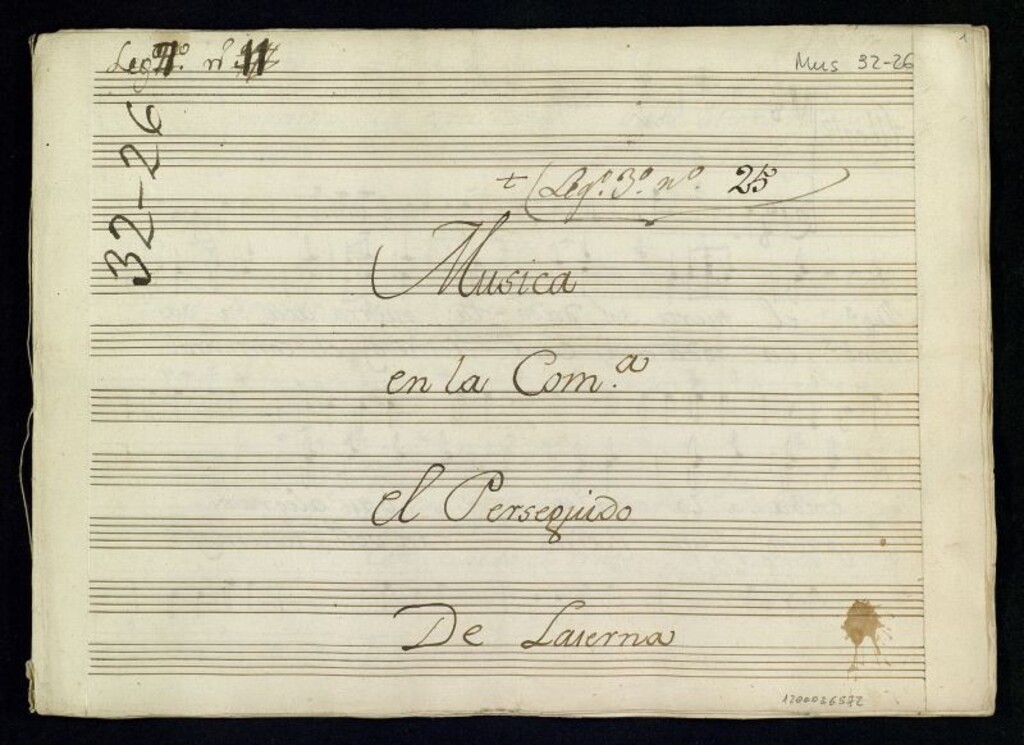 Leg.º nº 11
Mus 32-26
32-26
+ (Leg.º 3.º nº. 25
Musica
en la Com.ª
el Perseguido
De Laserna
1200026572